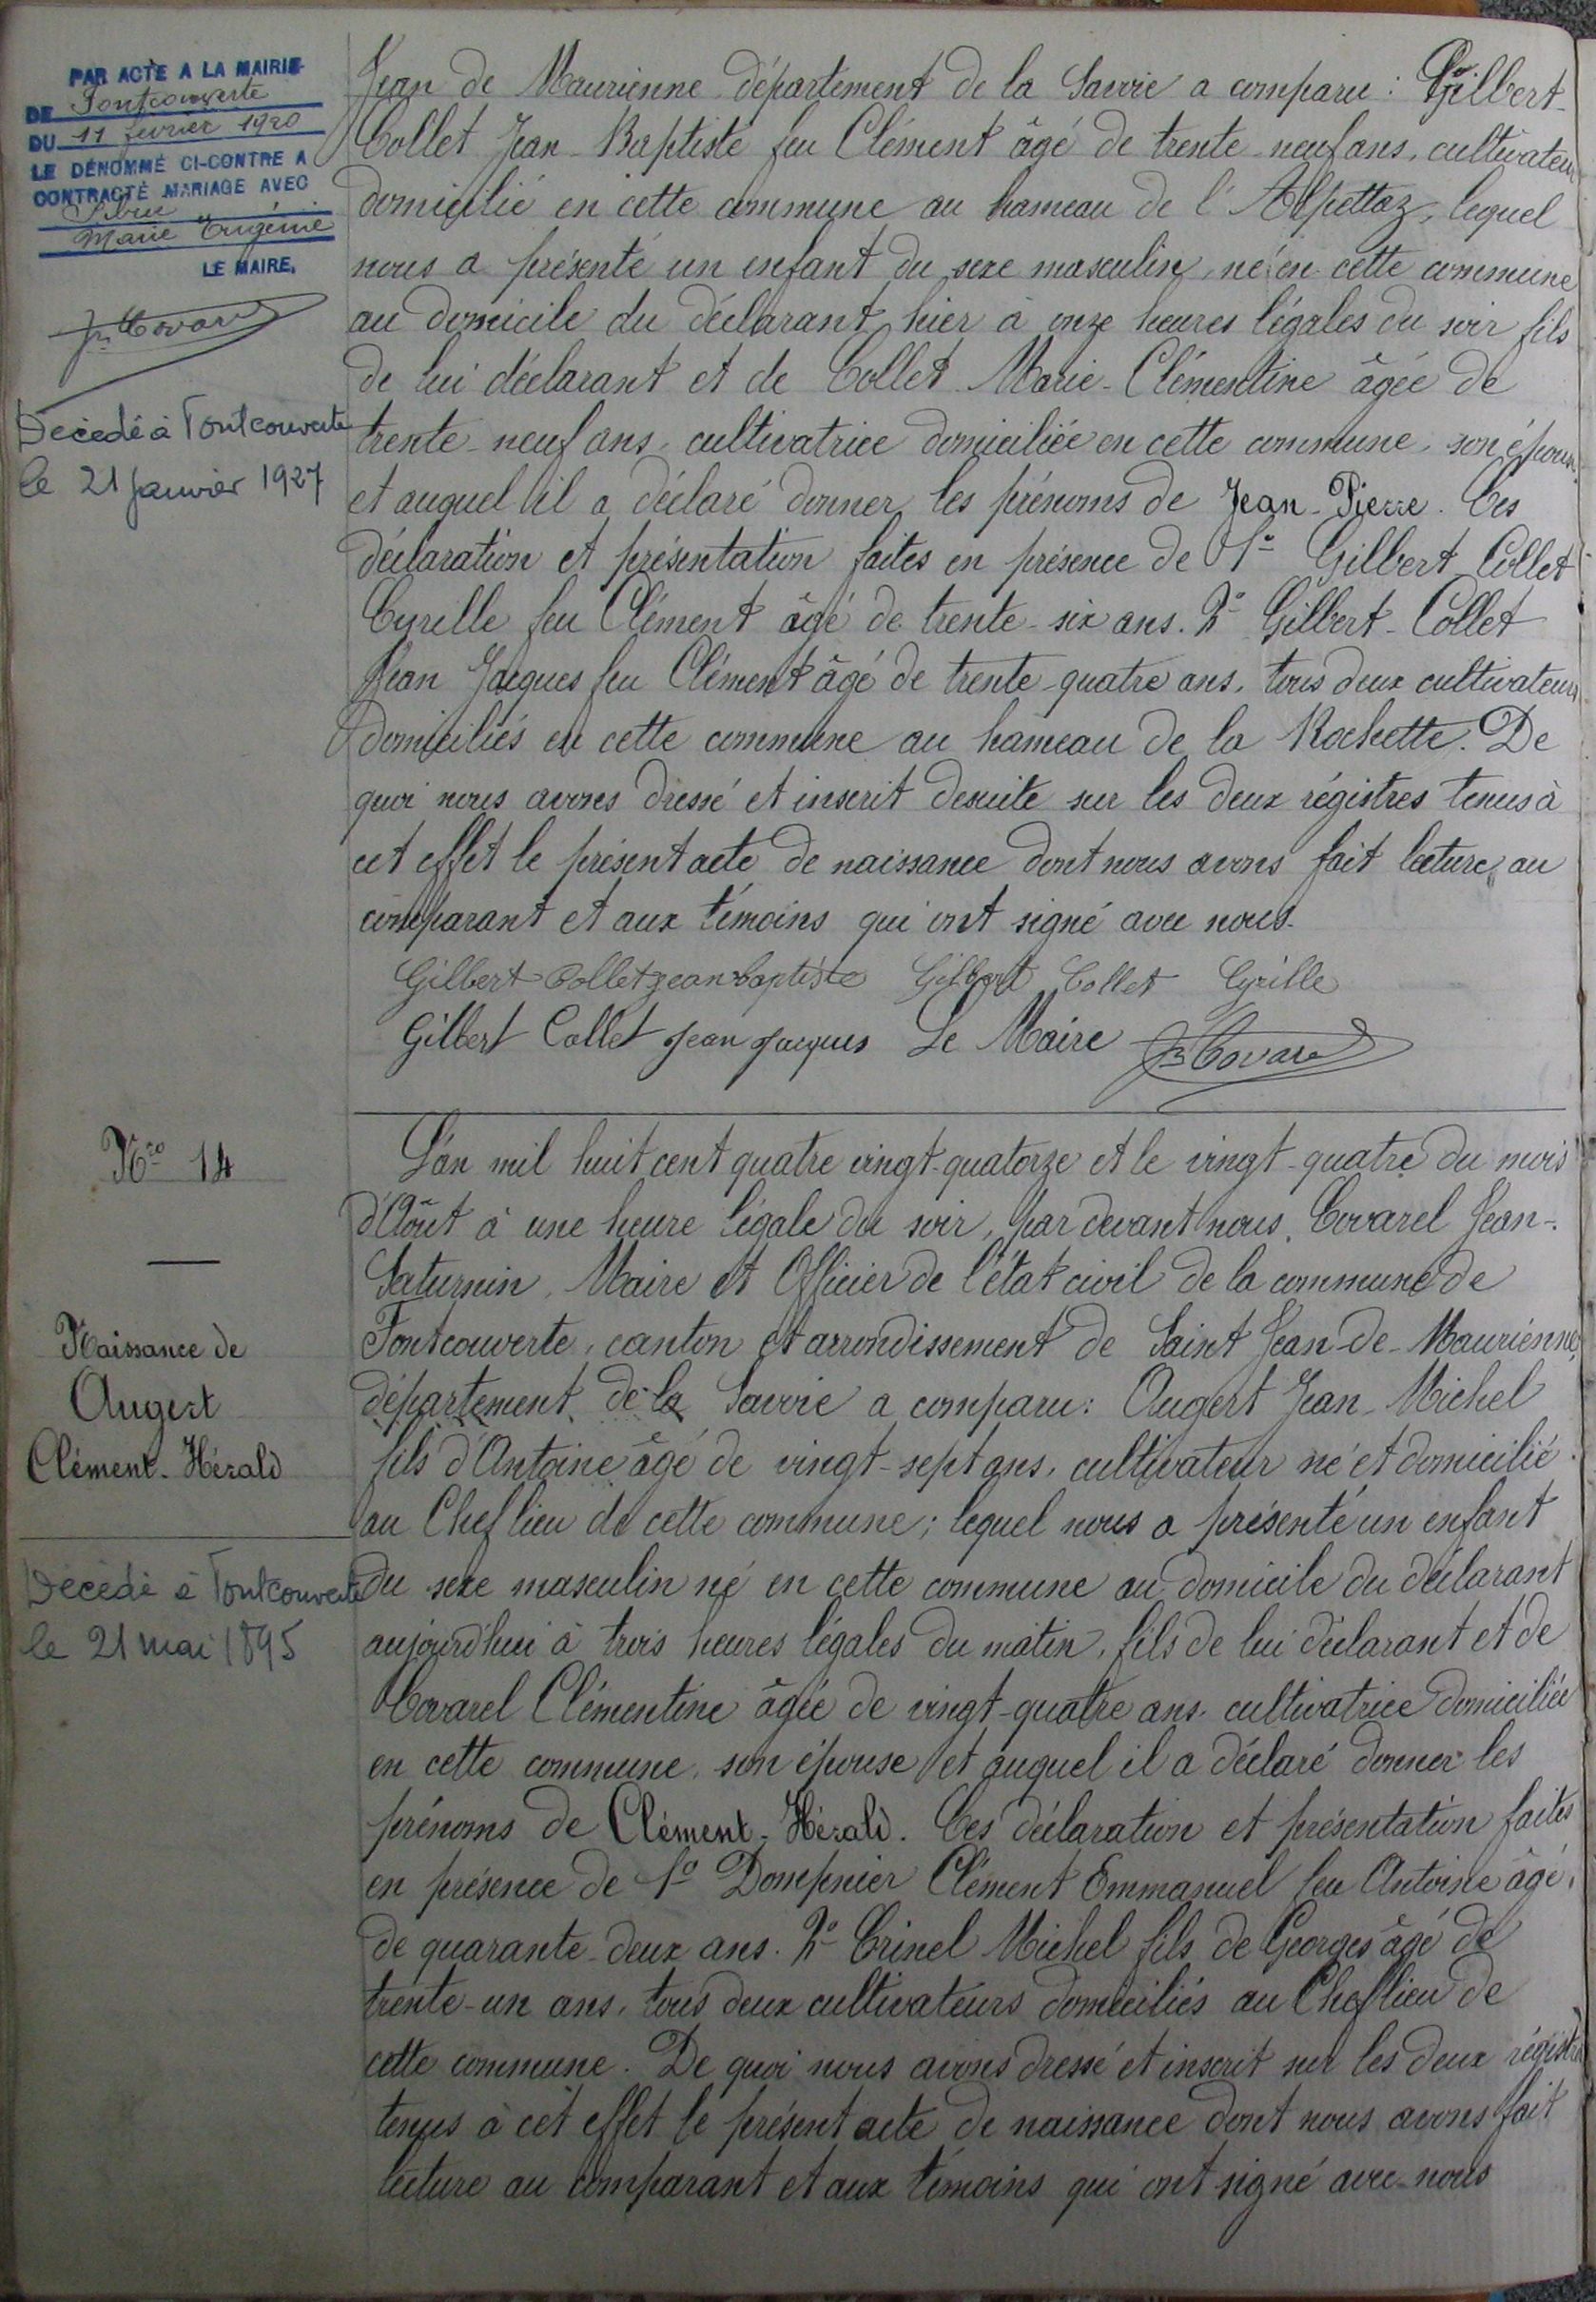 PAR ACTE A LA MAIRIE
DE Fontcouverte
DU 11 fevrier 1920
LE DÉNOMMÉ CI-CONTRE A
CONTRACTÉ MARIAGE AVEC
Marie Eugénie
LE MAIRE,
Jn Covarel
Décédé à Fontcouverte
le 21 Janvier 1927
Jean de Maurienne département de la Savoie a comparu : Gilbert-
Collet Jean-Baptiste feu Clément âgé de trente-neuf ans, cultivateur
domicilié en cette commune au hameau de l'Alpettaz, lequel
nous a présenté un enfant du sexe masculin, né en cette commune
au domicile du déclarant, hier à onze heures légales du soir fils
de lui déclarant et de Collet Marie-Clémentine âgée de
trente-neuf ans, cultivatrice domiciliée en cette commune, son épouse
et auquel il a déclaré donner les prénoms de Jean-Pierre. Ces
déclaration et présentation faites en présence de 1° Gilbert-Collet
Cyrille feu Clément âgé de trente-six ans. 2° Gilbert-Collet
Jean Jacques feu Clément âgé de trente-quatre ans, tous deux cultivateurs
domiciliés en cette commune au hameau de la Rochette. De
quoi nous avons dressé et inscrit desuite sur les deux régistres tenus à
cet effet le présent acte de naissance dont nous avons fait lecture au
comparant et aux témoins qui ont signé avec nous.
Gilbert Collet jean baptiste Gilbert Collet Cyrille
Gilbert Collet Jean Jacques Le Maire Covarel
Nro 14
Naissance de
Augert
Clément-Hérald
Décédé à Fontcouverte
le 21 mai 1895
L'an mil huit cent quatre vingt-quatorze et le vingt-quatre du mois
d'Août à une heure légale du soir, par devant nous, Covarel Jean-
Saturnin, Maire et Officier de l'état civil de la commune de
Fontcouverte, canton et arrondissement de Saint Jean-de-Maurienne,
département de la Savoie a comparu : Augert Jean-Michel
fils d'Antoine âgé de vingt-sept ans, cultivateur né et domicilié
au Chef lieu de cette commune ; lequel nous a présenté un enfant
du sexe masculin né en cette commune au domicile du déclarant
aujourd'hui à trois heures légales du matin, fils de lui déclarant et de
Covarel Clémentine âgée de vingt-quatre ans, cultivatrice domiciliée
en cette commune, son épouse et auquel il a déclaré donner les
prénoms de Clément-Hérald. Ces déclaration et présentation faites
en présence de 1° Dompnier Clément Emmanuel feu Antoine âgé
de quarante-deux ans. 2° Crinel Michel fils de Georges âgé de
trente-un ans, tous deux cultivateurs domiciliés au Chef lieu de
cette commune. De quoi nous avons dressé et inscrit sur les deux régistres
tenus à cet effet le présent acte de naissance dont nous avons fait
lecture au comparant et aux témoins qui ont signé avec nous